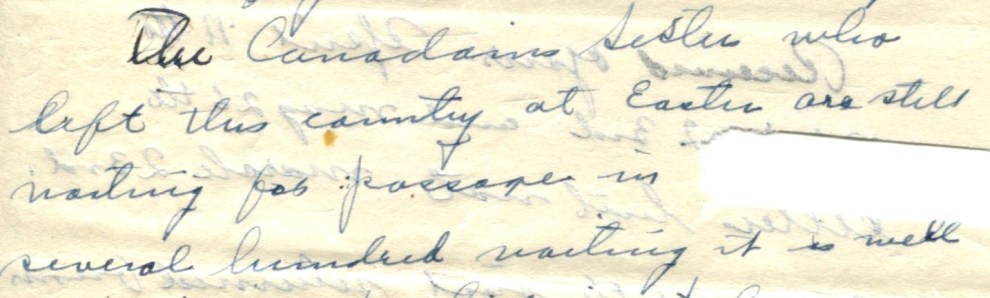 The Canadains sister who
left this country at Easter are still
waiting for passage in
several hundred waiting it is well